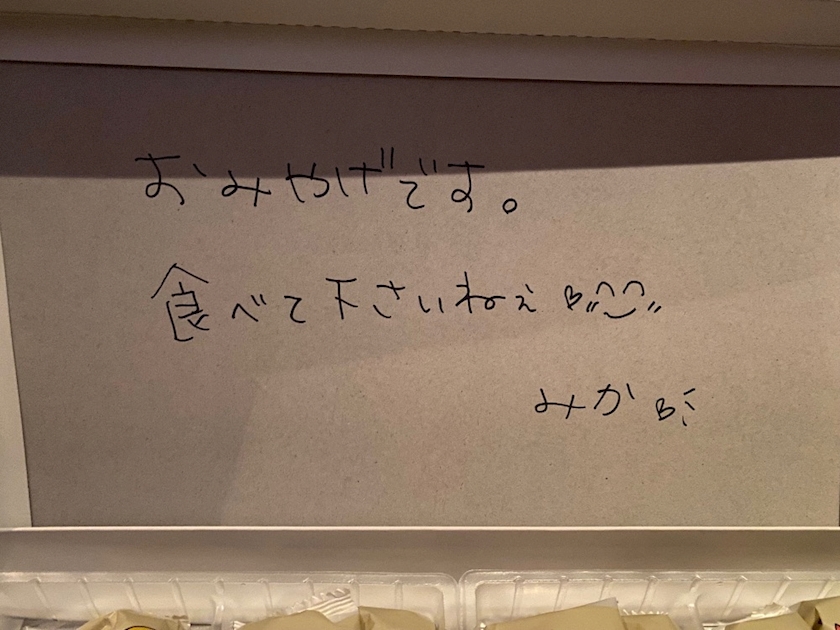 おみやげです。
食べて下さいねぇ♡"^‿^"
みか♡